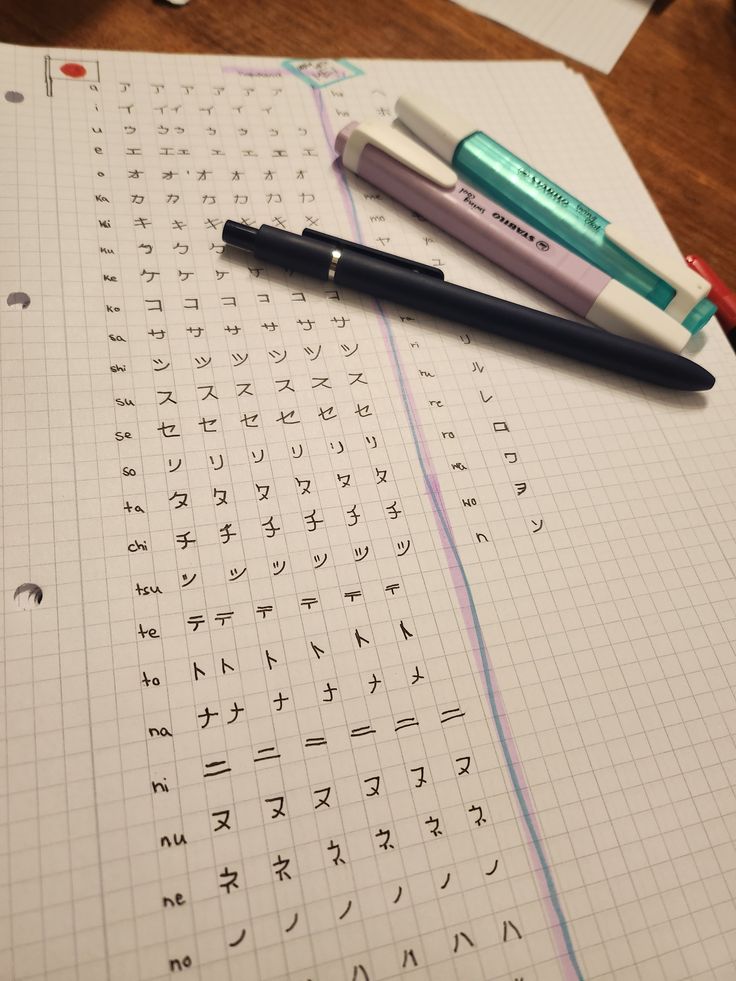 a ア ア ア ア ア ア
i イ イ イ イ イ イ
u ウ ウ ウ ウ ウ ウ ウ
e エ エ エ エ エ エ
o オ オ オ オ オ オ
ka カ カ カ カ カ カ
ki キ キ キ キ キ キ
ku ク ク ク
ke ケ ケ ケ ケ
ko コ コ コ コ コ コ
sa サ サ サ サ サ サ
shi シ シ シ シ シ シ
su ス ス ス ス ス ス
se セ セ セ セ セ セ
so ソ ソ ソ ソ ソ ソ
ta タ タ タ タ タ タ
chi チ チ チ チ チ チ
tsu ツ ツ ツ ツ ツ ツ
te テ テ テ テ テ テ
to ト ト ト ト ト ト
na ナ ナ ナ ナ ナ ナ
ni ニ ニ ニ ニ ニ ニ
nu ヌ ヌ ヌ ヌ ヌ ヌ
ne ネ ネ ネ ネ ネ ネ
no ノ ノ ノ ノ ノ ノ
ハ ハ ハ ハ
he ヘ
ho ホ
me
mo
ya ヤ
ユ
ra
ri リ
ru ル
re レ
ro ロ
wa ワ
wo ヲ
n ン
STABILO swing cool